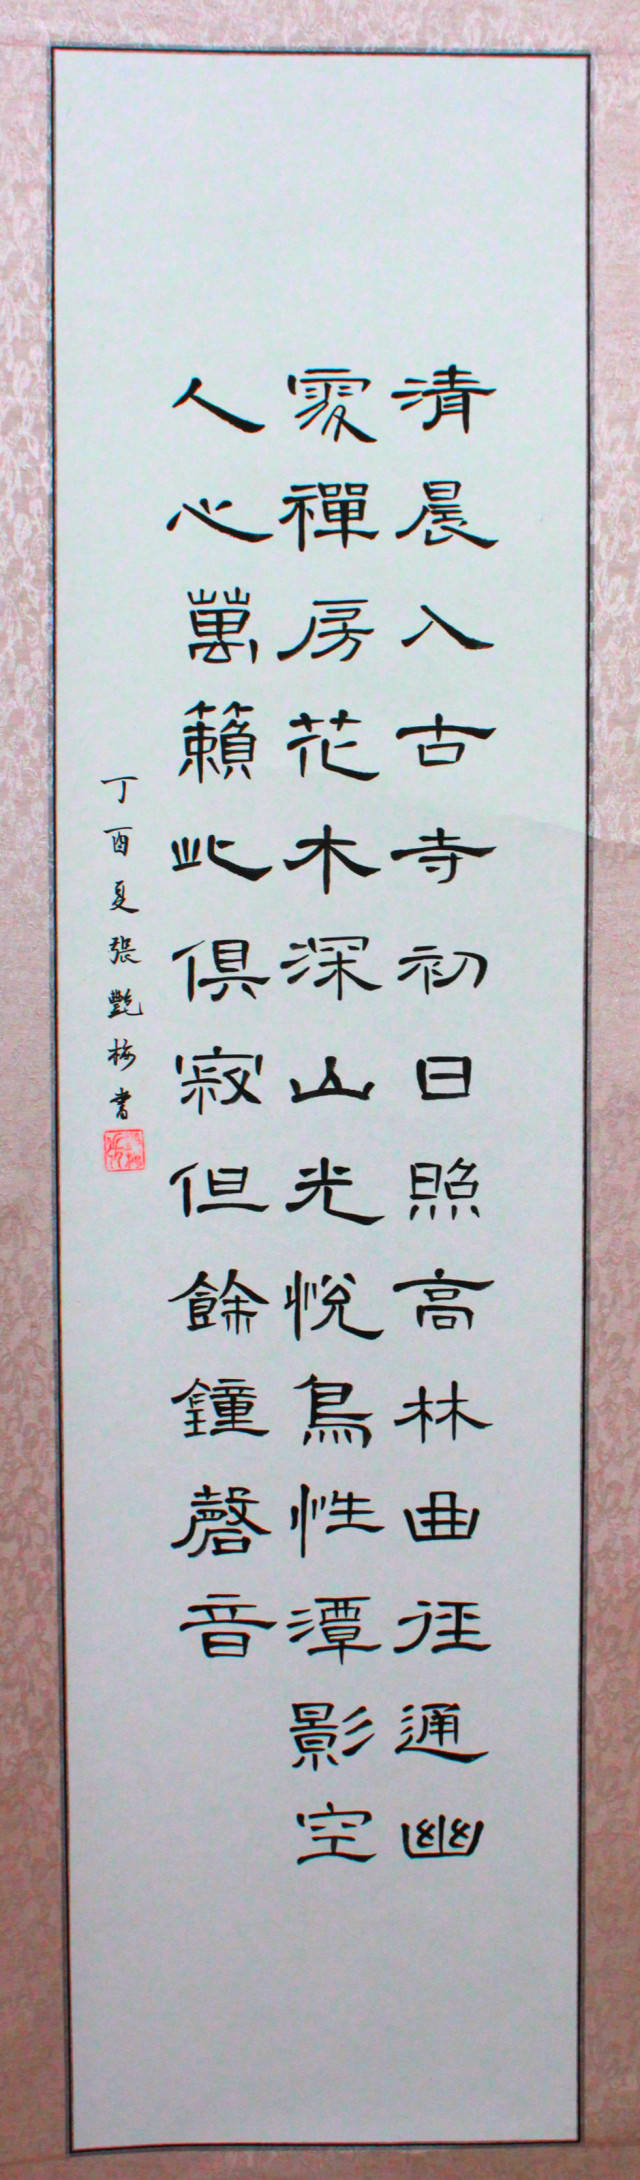 清晨入古寺初日照高林曲径通幽
處禪房花木深山光悅鳥性潭影空
人心萬籟此俱寂但餘鐘磬音
丁酉夏張艷梅書